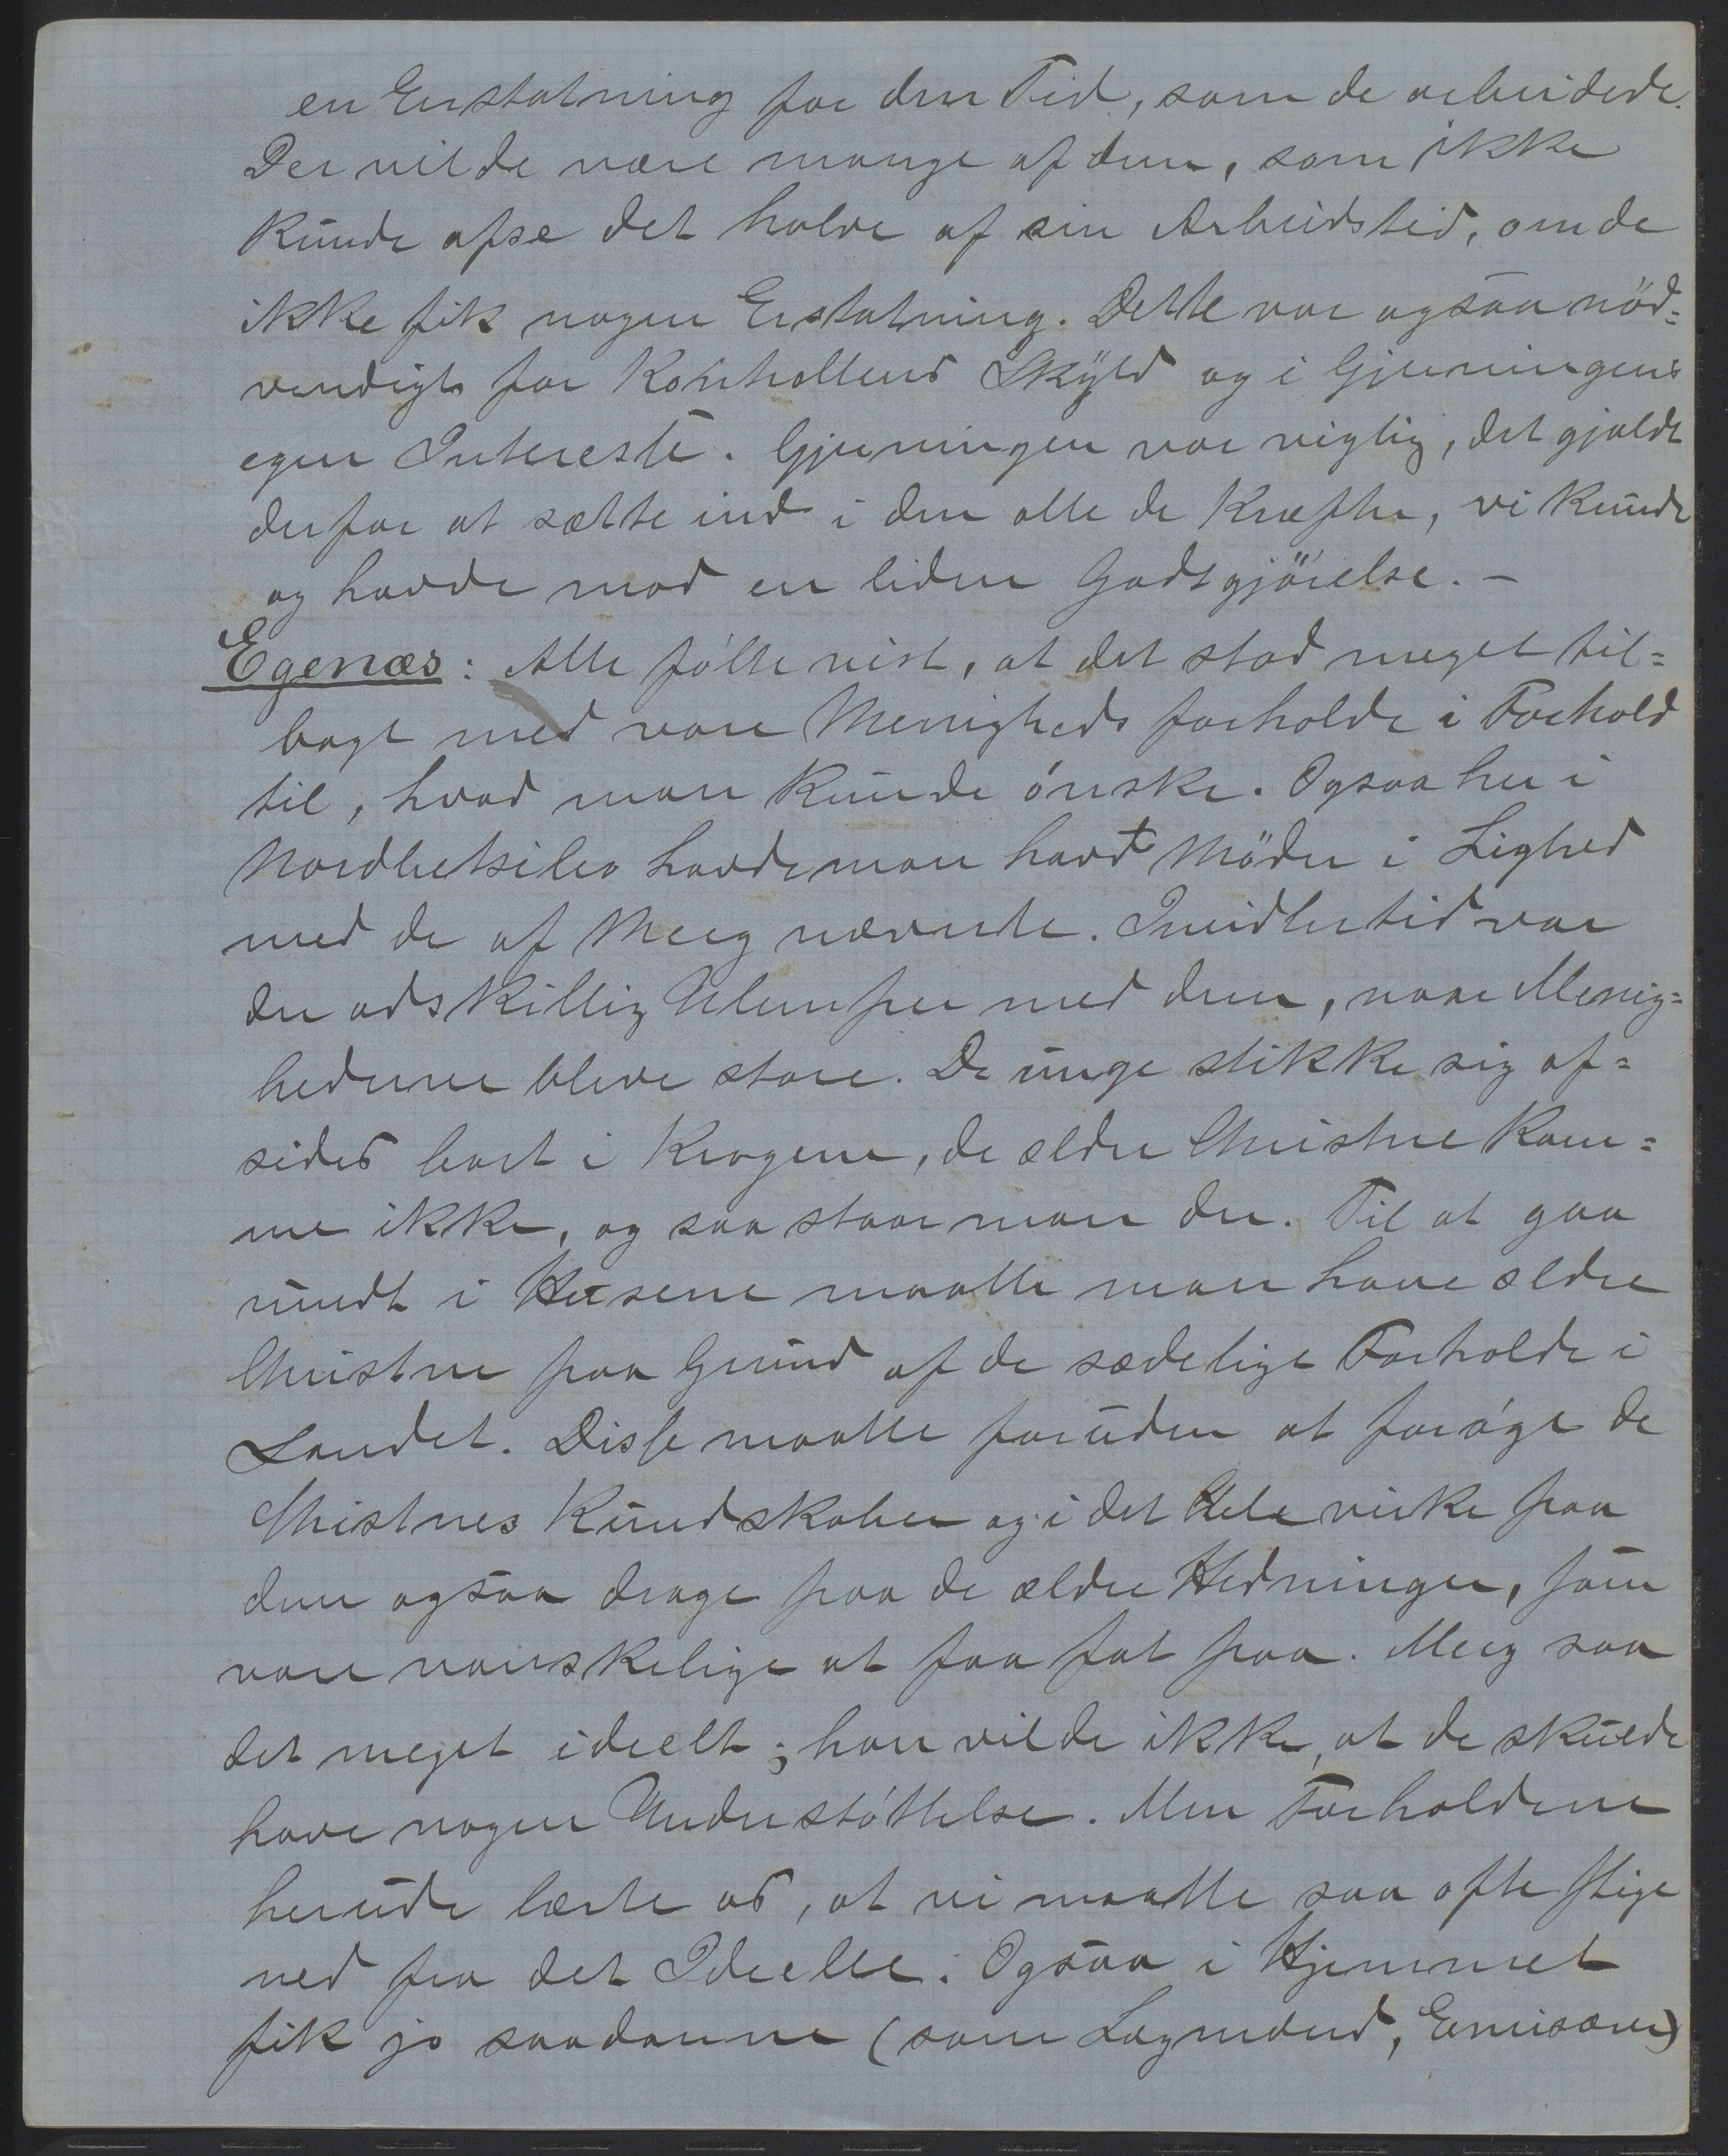 en Erstatning for den Tid, som de arbeidede.
Der vilde være mange af dem, som ikke
kunde afse det halve af sin Arbeidstid, om de
ikke fik nogen Erstatning. Dette var ogsaa nød=
vendigt for Kontrollens Skyld og i Gjerningens
egen Interesse. Gjerningen var vigtig, det gjaldt
derfor at sætte ind i den alle de Kræfter, vi kunde
og havde mod en liden Godtgjörelse. –
Egenæs: Alle følte vist, at det stod meget til=
bage med vore Menigheds forholde i Forhold
til, hvad man kunde ønske. Ogsaa her i
Nordbetsileo havde man havt Möder i Lighed
med de af Meeg nævnte. Imidlertid var
der adskillig Ulemper med dem, naar Menig=
hederne bleve store. De unge stikke sig af=
sides bort i Krogene, de ældre Christne kom=
me ikke, og saa staar man der. Til at gaa
rundt i Husene maatte man have ældre
Christne paa Grund af de sædelige Forholde i
Landet. Disse maatte foruden at forøge de
Christnes Kundskaber og i det Hele virke paa
dem ogsaa drage paa de ældre Hedninger, som
vare vanskelige at faa fat paa. Meeg saa
det meget ideelt; han vilde ikke, at de skulde
have nogen Understøttelse. Men Forholdene
herude lærte os, at vi maatte saa ofte stige
ned fra det Ideelle. Ogsaa i Hjemmet
fik jo saadanne (som Lægmænd, Emisærer)